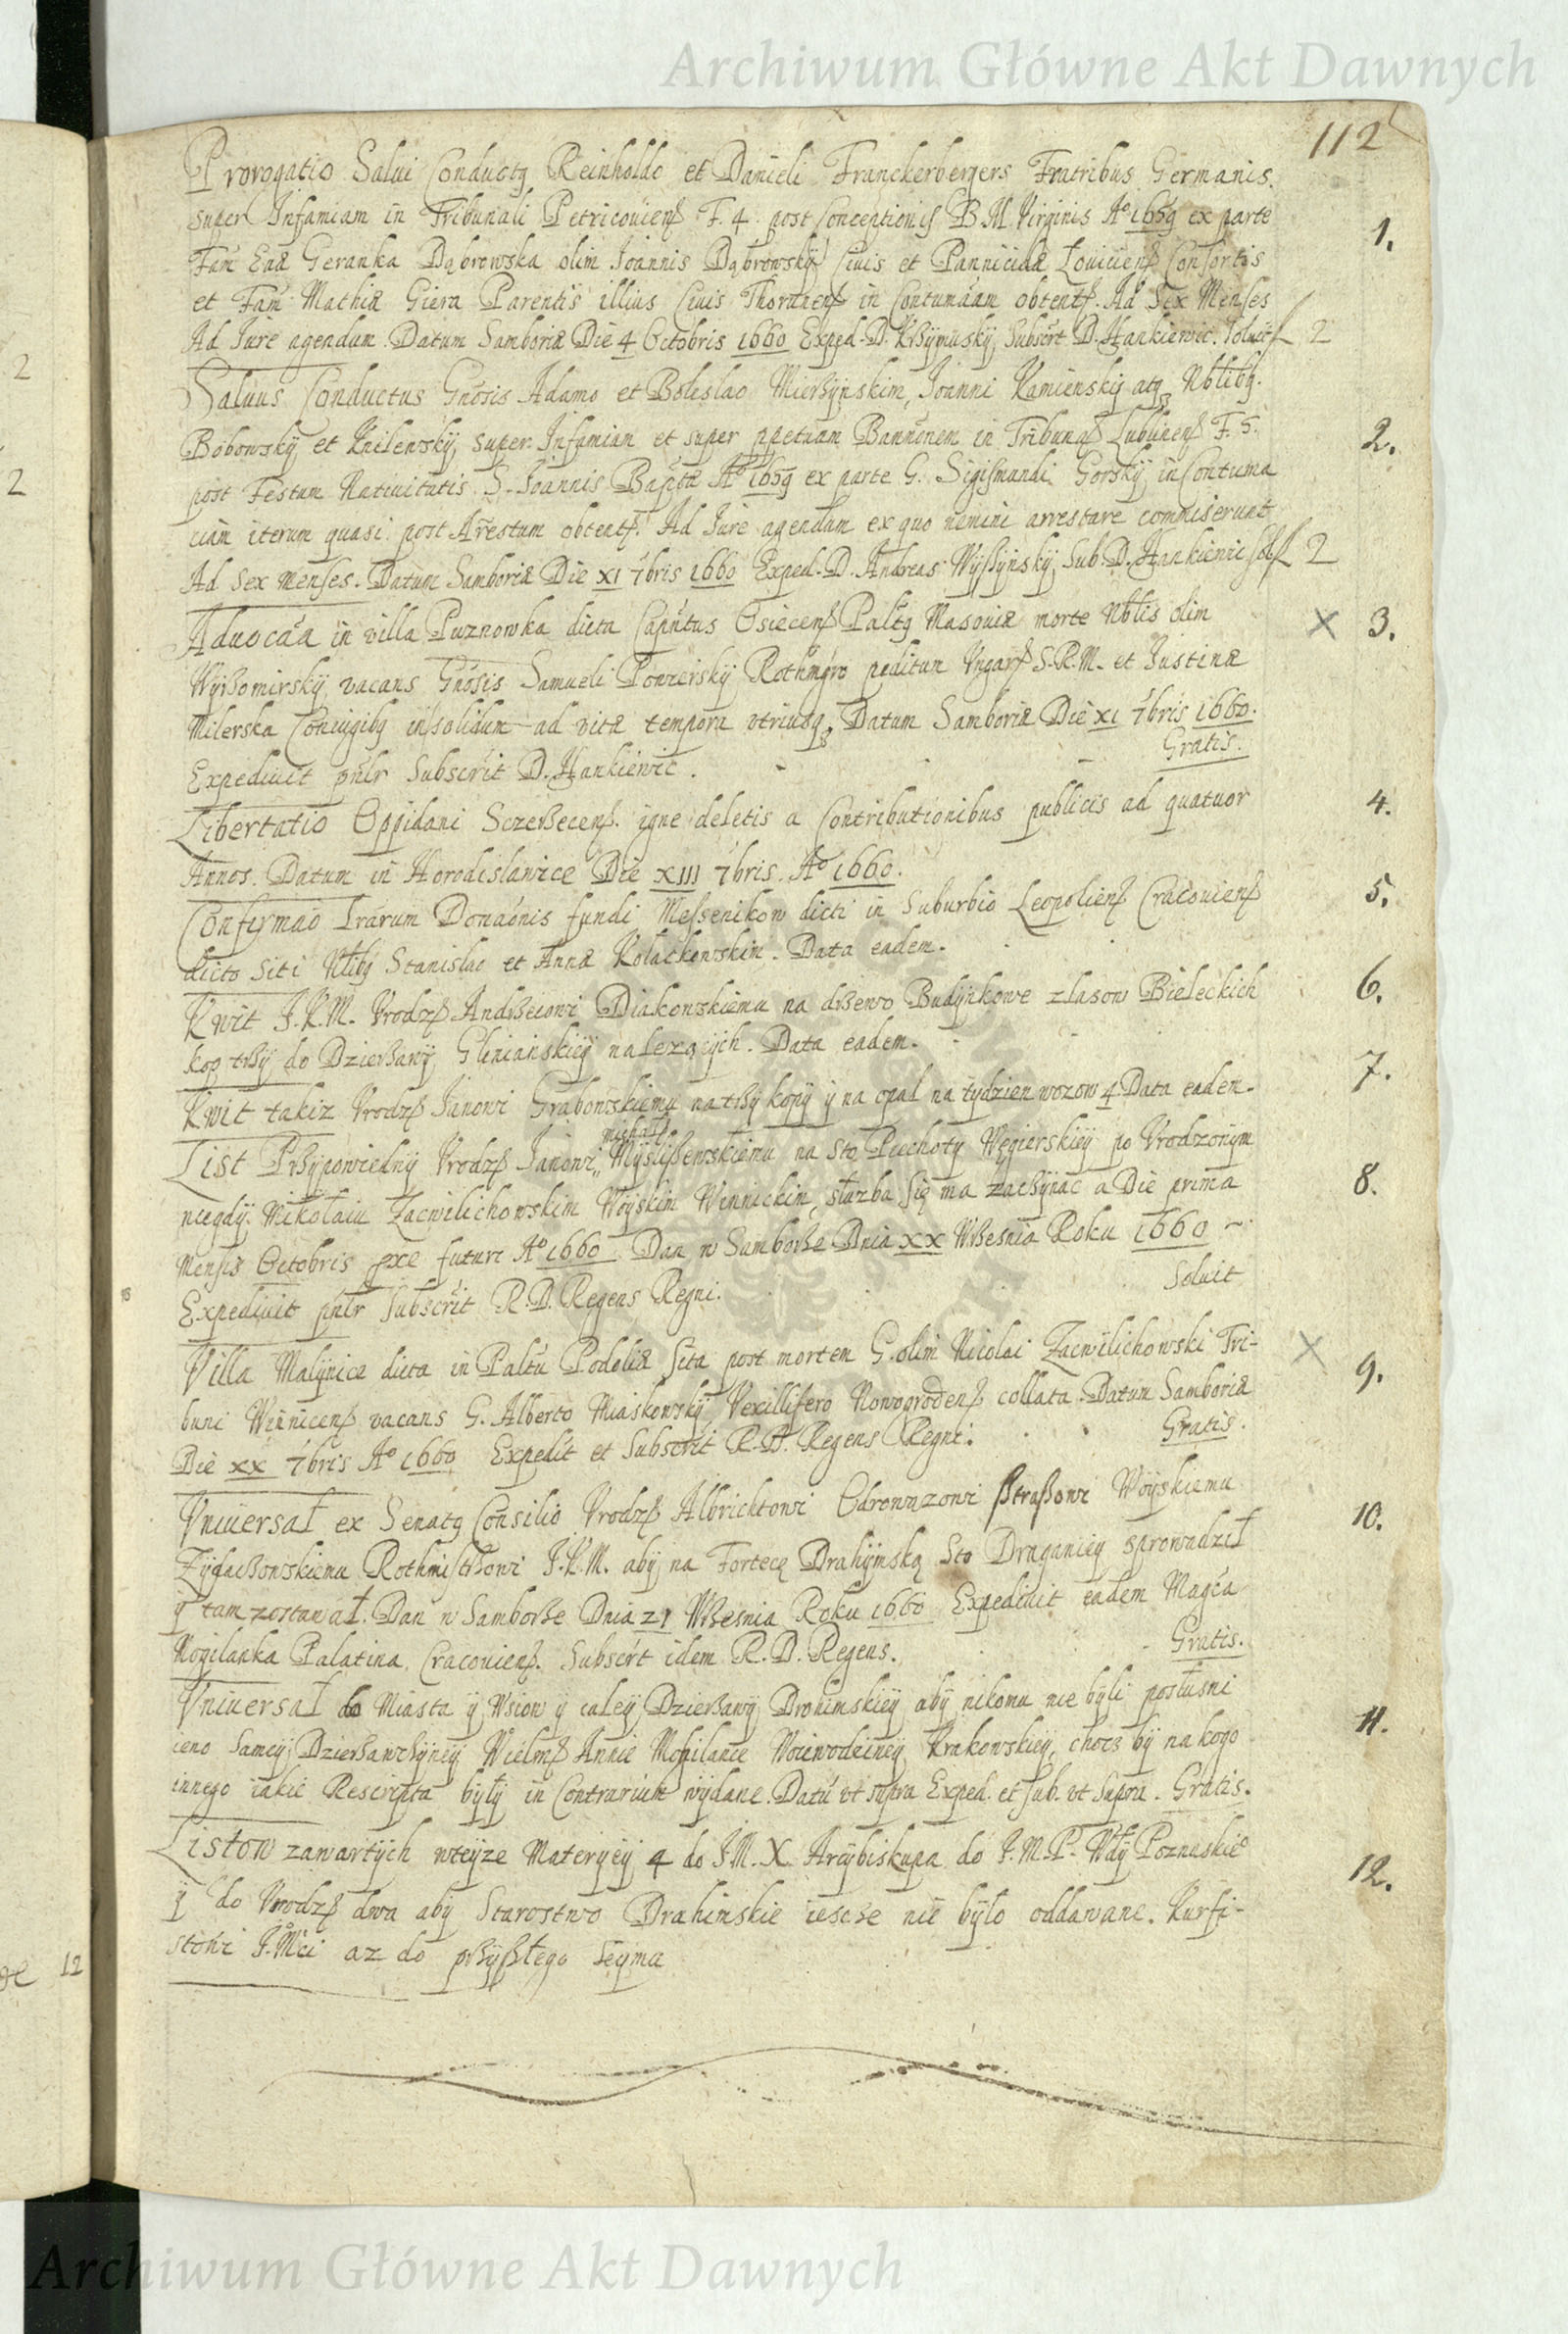 Archiwum Główne Akt Dawnych
112
Prorogatio Salui Conductq Reinholdo et Danieli Franckerbergers Fratribus Germanis.
super Infamiam in Tribunali Petricouien F. 4. post Conceptionis B.M. Virginis Aº 1659 ex parte
1.
Fam Euæ Geranka Dąbrowska olim Joannis Dąbrowsky Ciuis et Pannicidæ Louicien Consortis
et Fam Mathiæ Giera Parentis illius Ciuis Thorunen in Contumaam obtent. Ad Sex Menses
Ad Jure agendum. Datum Samboriæ Die 4 Octobris 1660 Exped. D. Subscrt D. Hankiewic. Soluit 2
Saluus Conductus Gnosis Adamo et Boleslao Joanni Kamienskij atq Nblibq.
Bobowskÿ et super Infamian et super ppetuam Bannonem in Tribunal Lublinen F. 5.
2.
post Festum Natiuitatis S. Joannis Baptæ Aº 1659 ex parte G. Sigismundi Gorskÿ in Contuma
ciam iterum quasi post Arestum obtent. Ad Jure agendum ex quo nemini arrestare commiserunt
Ad Sex menses. Datum Samboriæ Die XI 7bris 1660 Exped. D. Andreas Sub. D. Hankiewic sol 2
Aduocaa in villa Puznowka dicta Capntus Osiecen Paltq Masouiæ morte Nblis olim
X 3.
vacans Gnosis Samueli Rothmgro peditum Vngar S.R.M. et Justinæ
Milerska Coniugibq insolidum ad vitæ tempora vtriusq. Datum Samboriæ Die XI 7bris 1660.
Gratis.
Expediuit pnlr Subscrit D. Hankiewic.
Libertatio Oppidani igne deletis a Contributionibus publicis ad quatuor
4.
Annos. Datum in Horodislawice Die XIII 7bris. Aº 1660.
Confirmao Lrarum Donaonis fundi Messenikow dicti in Suburbio Leopolien Cracouien
5.
dicto Siti Nblibq Stanislao et Annæ Kołaczkowskim. Data eadem.
Kwit J.K.M. Vrodz Andrzeiowi Diakowskiemu na drzewo Budÿnkowe z lasow Bieleckich
6.
kop trzÿ do Dzierzawÿ Gliniańskieÿ nalezącÿch. Data eadem.
Kwit takiz Vrodz Janowi Grabowskiemu na trzÿ kopÿ ÿ na opał na tÿdzien wozow 4 Data eadem.
7.
Michał
List Przÿpowiednÿ Vrodz Janowi Mÿsliszewskiemu na Sto Piechotÿ Węgierskieÿ po Vrodzonÿm
8.
niegdÿ Mikołaiu Zacwilichowskim Woÿskim Winnickim, służba się ma zaczÿnać a Die prima
mensis Octobris pxe futuri Aº 1660. Dan w Samborze Dnia XX Wrzesnia Roku 1660
Soluit
Expediuit pnlr Subscrit R.D. Regens Regni.
Villa Malÿnice dicta in Paltu Podoliæ Sita post mortem G. olim Nicolai Zacwilichowski Tri-
X 9.
buni Winnicen vacans G. Alberto Miaskowskÿ Vexillifero Nowogroden collata. Datum Samboriæ
Gratis.
Die XX 7bris Aº 1660 Expedit et Subscrit R.D. Regens Regni.
Vniuersał ex Senatq Consilio Vrodz Albrichtowi Odrowązowi Woÿskiemu
10.
Rothmistrzowi J.K.M. abÿ na Fortecę Drahimską Sto Draganieÿ sprowadził
ÿ tam zostawał. Dan w Samborze Dnia 21 Wrzesnia Roku 1660 Expediuit eadem Magca
Gratis.
Mogilanka Palatina Cracouien. Subscrt idem R.D. Regens.
Vniuersał do Miasta ÿ Wsiow ÿ całeÿ Dzierzawÿ Drohimskieÿ abÿ nikomu nie bÿli posłusni
11.
ieno Sameÿ Dzierzawczÿneÿ Wielm Annie Mogilance Woiewodzineÿ Krakowskieÿ, chocz bÿ na kogo
innego iakie Rescripta bÿłÿ in Contrarium wÿdane. Datu vt supra Exped. et Sub. vt Supra. Gratis.
Listow zawartÿch wteÿze Materÿeÿ 4 do J.M. X. Arcÿbiskupa do J.M.P. Wdÿ Poznaskieº
12.
ÿ do Vrodz dwa abÿ Starostwo Drahimskie iescze nie bÿło oddawane. Kurfi-
stowi J.Mci az do przÿszłego Seÿma
Archiwum Główne Akt Dawnych